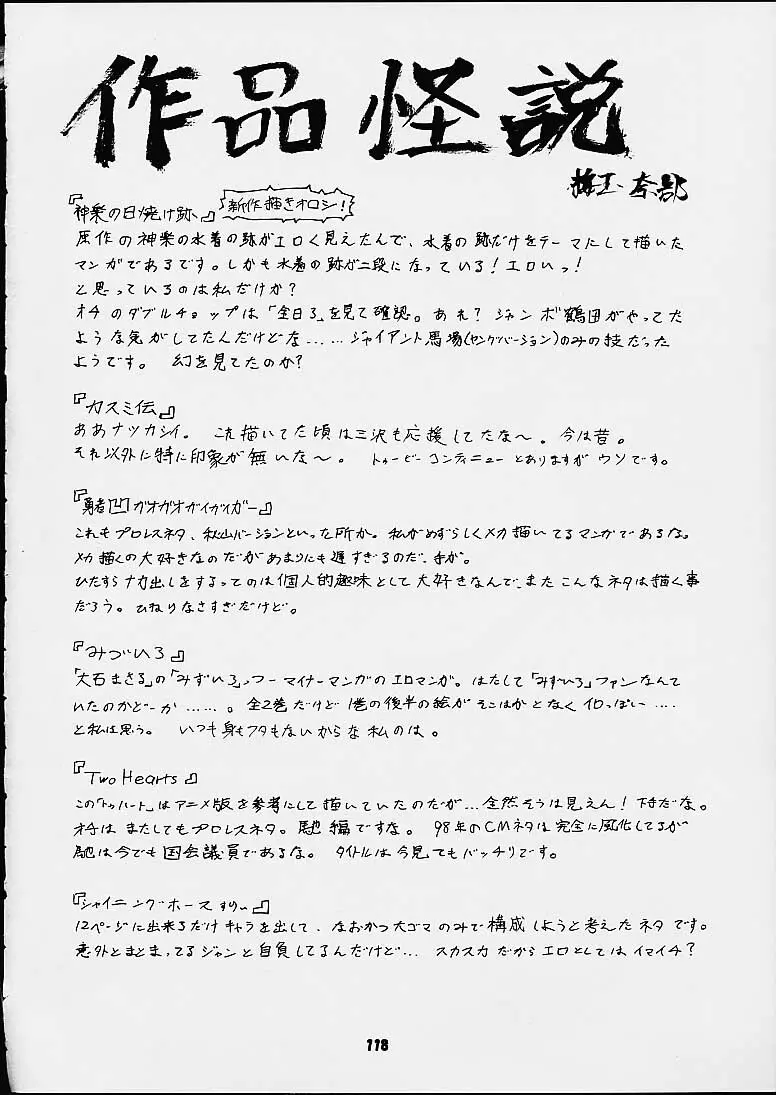 作品怪説
『神楽の日焼け跡』 新作描きオロシ!
原作の神楽の水着の跡がエロく見えたんで、水着の跡だけをテーマにして描いた
マンガであるです。しかも水着の跡が二段になっている!エロいっ!
と思っているのは私だけか?
オチのダブルチョップは「全日る」を見て確認。あれ? ジャンボ鶴田がやってた
ような気がしてたんだけどな……ジャイアント馬場(ヤングバージョン)のみの技だった
ようです。 幻を見てたのか?
『カスミ伝』
ああナツカシイ。 これ描いてた頃は三沢も応援してたな〜。今は昔。
それ以外に特に印象が無いな〜。 トゥービーコンティニューとありますがウソです。
『勇者凹ガオガオガイガイガー』
これもプロレスネタ、秋山バージョンといった所か。私がめずらしくメカ描いてるマンガであるな。
メカ描くの大好きなのだがあまりにも遅すぎるのだ、手が。
ひたすらナカ出しをするってのは個人的趣味として大好きなんで、またこんなネタは描く事
だろう。ひねりなさすぎだけど。
『みづいろ』
「大石まさる」の「みずいろ」っつーマイナーマンガのエロマンガ。はたして「みずいろ」ファンなんて
いたのかどーか……。全2巻だけど1巻の後半の絵がそこはかとなくイロっぽい……
と私は思う。 いつも身もフタもないからな私のは。
『Two Hearts』
この「トゥハート」はアニメ版を参考にして描いていたのだが…全然そうは見えん!下手だな。
オチはまたしてもプロレスネタ。馳編ですな。 98年のCMネタは完全に風化してるが
馳は今でも国会議員であるな。 タイトルは今見てもバッチリです。
『シャイニングホース すりぃ』
12ページに出来るだけキャラを出して、なおかつ大ゴマのみで構成しようと考えたネタです。
意外とまとまってるジャンと自負してるんだけど… スカスカだからエロとしてはイマイチ?
118